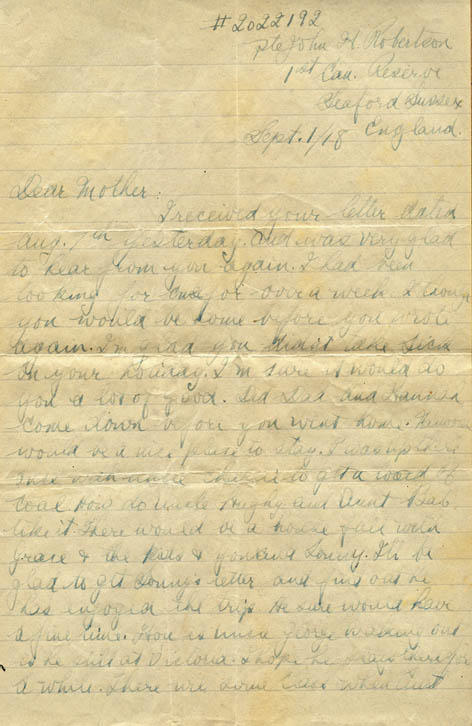 #2022192
Pte John H. Robertson
1st Can. Reserve
Seaford Sussex
Sept. 1/18 England.
Dear Mother:
I received your letter dated
Aug. 7th yesterday. And was very glad
to hear from you again. I had been
looking for one for over a week. I
you would be home before you wrote
again. I'm glad you didn't take sick
on your holiday. I'm sure it would do
you a lot of good. Did Dad and Hannah
come down before you went home.
would be a nice place to stay. I was up
once with uncle to get a load of
coal How do uncle Hughy and Aunt
like it There would be a house full with
Grace & the kids & you and Lonny. I'll be
glad to get Lonnys letter and find out he
has enjoyed the trip He sure would have
a fine time. How is uncle George making out
is he still at Victoria. I hope he stays there for
a while. There are some when that